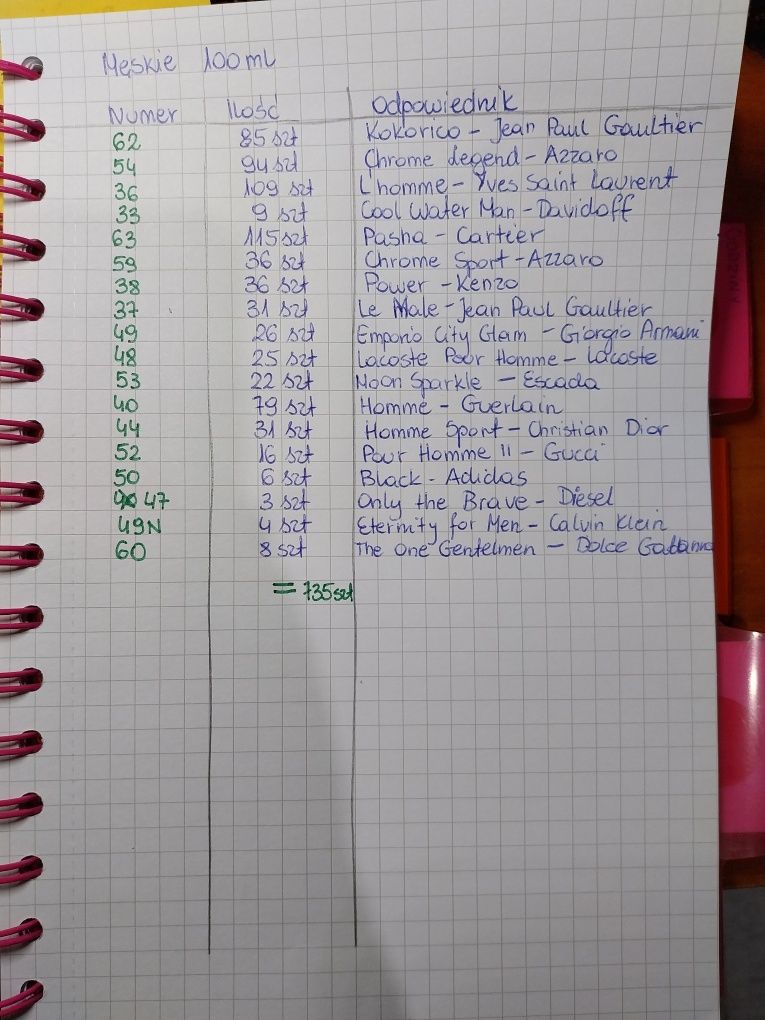 Męskie 100ml
Numer Ilość Odpowiednik
62 85 szt Kokorico - Jean Paul Gaultier
54 94 szt Chrome Legend - Azzaro
36 109 szt L'homme - Yves Saint Laurent
33 9 szt Cool Water Man - Davidoff
63 115 szt Pasha - Cartier
59 36 szt Chrome Sport - Azzaro
38 36 szt Power - Kenzo
37 31 szt Le Male - Jean Paul Gaultier
49 26 szt Emporio City Glam - Giorgio Armani
48 25 szt Lacoste Pour Homme - Lacoste
53 22 szt Moon Sparkle - Escada
40 79 szt Homme - Guerlain
44 31 szt Homme Sport - Christian Dior
52 16 szt Pour Homme II - Gucci
50 6 szt Black - Adidas
47 3 szt Only the Brave - Diesel
49N 4 szt Eternity for Men - Calvin Klein
60 8 szt The One Gentelmen - Dolce Gabbana
= 735 szt